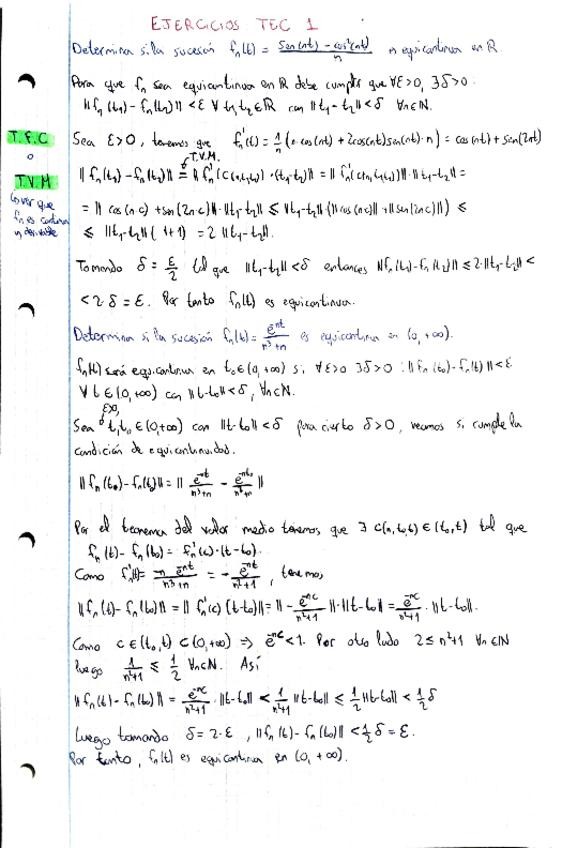 EJERCICIOS TEC 1
Determina si la sucesión fₙ(t) = (sen(nt) - cos²(nt))/n es equicontinua en R
Para que fₙ sea equicontinua en R debe cumplir que ∀ε>0, ∃δ>0:
‖fₙ(t₁) - fₙ(t₂)‖ < ε ∀ t₁,t₂∈R con ‖t₁-t₂‖ < δ ∀n∈N.
T.F.C
o
T.V.M
ver que
fₙ es continua
y derivable
Sea ε>0, tenemos que fₙ'(t) = 1/n (n·cos(nt) + 2cos(nt)sen(nt)·n) = cos(nt) + sen(2nt)
T.V.M.
‖fₙ(t₁) - fₙ(t₂)‖ = ‖fₙ'(c(n,t₁,t₂))·(t₁-t₂)‖ = ‖fₙ'(c(n,t₁,t₂))‖·‖t₁-t₂‖ =
= ‖cos(n·c) + sen(2n·c)‖·‖t₁-t₂‖ ≤ ‖t₁-t₂‖(‖cos(nc)‖ + ‖sen(2nc)‖) ≤
≤ ‖t₁-t₂‖(1+1) = 2‖t₁-t₂‖.
Tomando δ = ε/2 tal que ‖t₁-t₂‖ < δ entonces ‖fₙ(t₁)-fₙ(t₂)‖ ≤ 2·‖t₁-t₂‖ <
< 2·δ = ε. Por tanto fₙ(t) es equicontinua.
Determina si la sucesión fₙ(t) = e⁻ⁿᵗ/(n³+n) es equicontinua en (0,+∞).
fₙ(t) será equicontinua en t₀∈(0,+∞) si ∀ε>0 ∃δ>0 : ‖fₙ(t₀)-fₙ(t)‖ < ε
∀t∈(0,+∞) con ‖t-t₀‖ < δ, ∀n∈N.
Sea ε>0, t,t₀∈(0,+∞) con ‖t-t₀‖ < δ para cierto δ>0, veamos si cumple la
condición de equicontinuidad.
‖fₙ(t₀) - fₙ(t)‖ = ‖e⁻ⁿᵗ/(n³+n) - e⁻ⁿᵗ⁰/(n³+n)‖
Por el teorema del valor medio tenemos que ∃ c(n,t₀,t)∈(t₀,t) tal que
fₙ(t) - fₙ(t₀) = fₙ'(c)·(t-t₀).
Como fₙ'(t) = -n e⁻ⁿᵗ/(n³+n) = -e⁻ⁿᵗ/(n²+1), tenemos
‖fₙ(t) - fₙ(t₀)‖ = ‖fₙ'(c)(t-t₀)‖ = ‖-e⁻ⁿᶜ/(n²+1)‖·‖t-t₀‖ = e⁻ⁿᶜ/(n²+1)·‖t-t₀‖.
Como c∈(t₀,t)⊂(0,+∞) ⇒ e⁻ⁿᶜ<1. Por otro lado 2≤n²+1 ∀n∈N
luego 1/(n²+1) ≤ 1/2 ∀n∈N. Así
‖fₙ(t) - fₙ(t₀)‖ = e⁻ⁿᶜ/(n²+1)·‖t-t₀‖ < 1/(n²+1)‖t-t₀‖ ≤ 1/2‖t-t₀‖ < 1/2 δ
Luego tomando δ = 2·ε, ‖fₙ(t) - fₙ(t₀)‖ < 1/2 δ = ε.
Por tanto, fₙ(t) es equicontinua en (0,+∞).